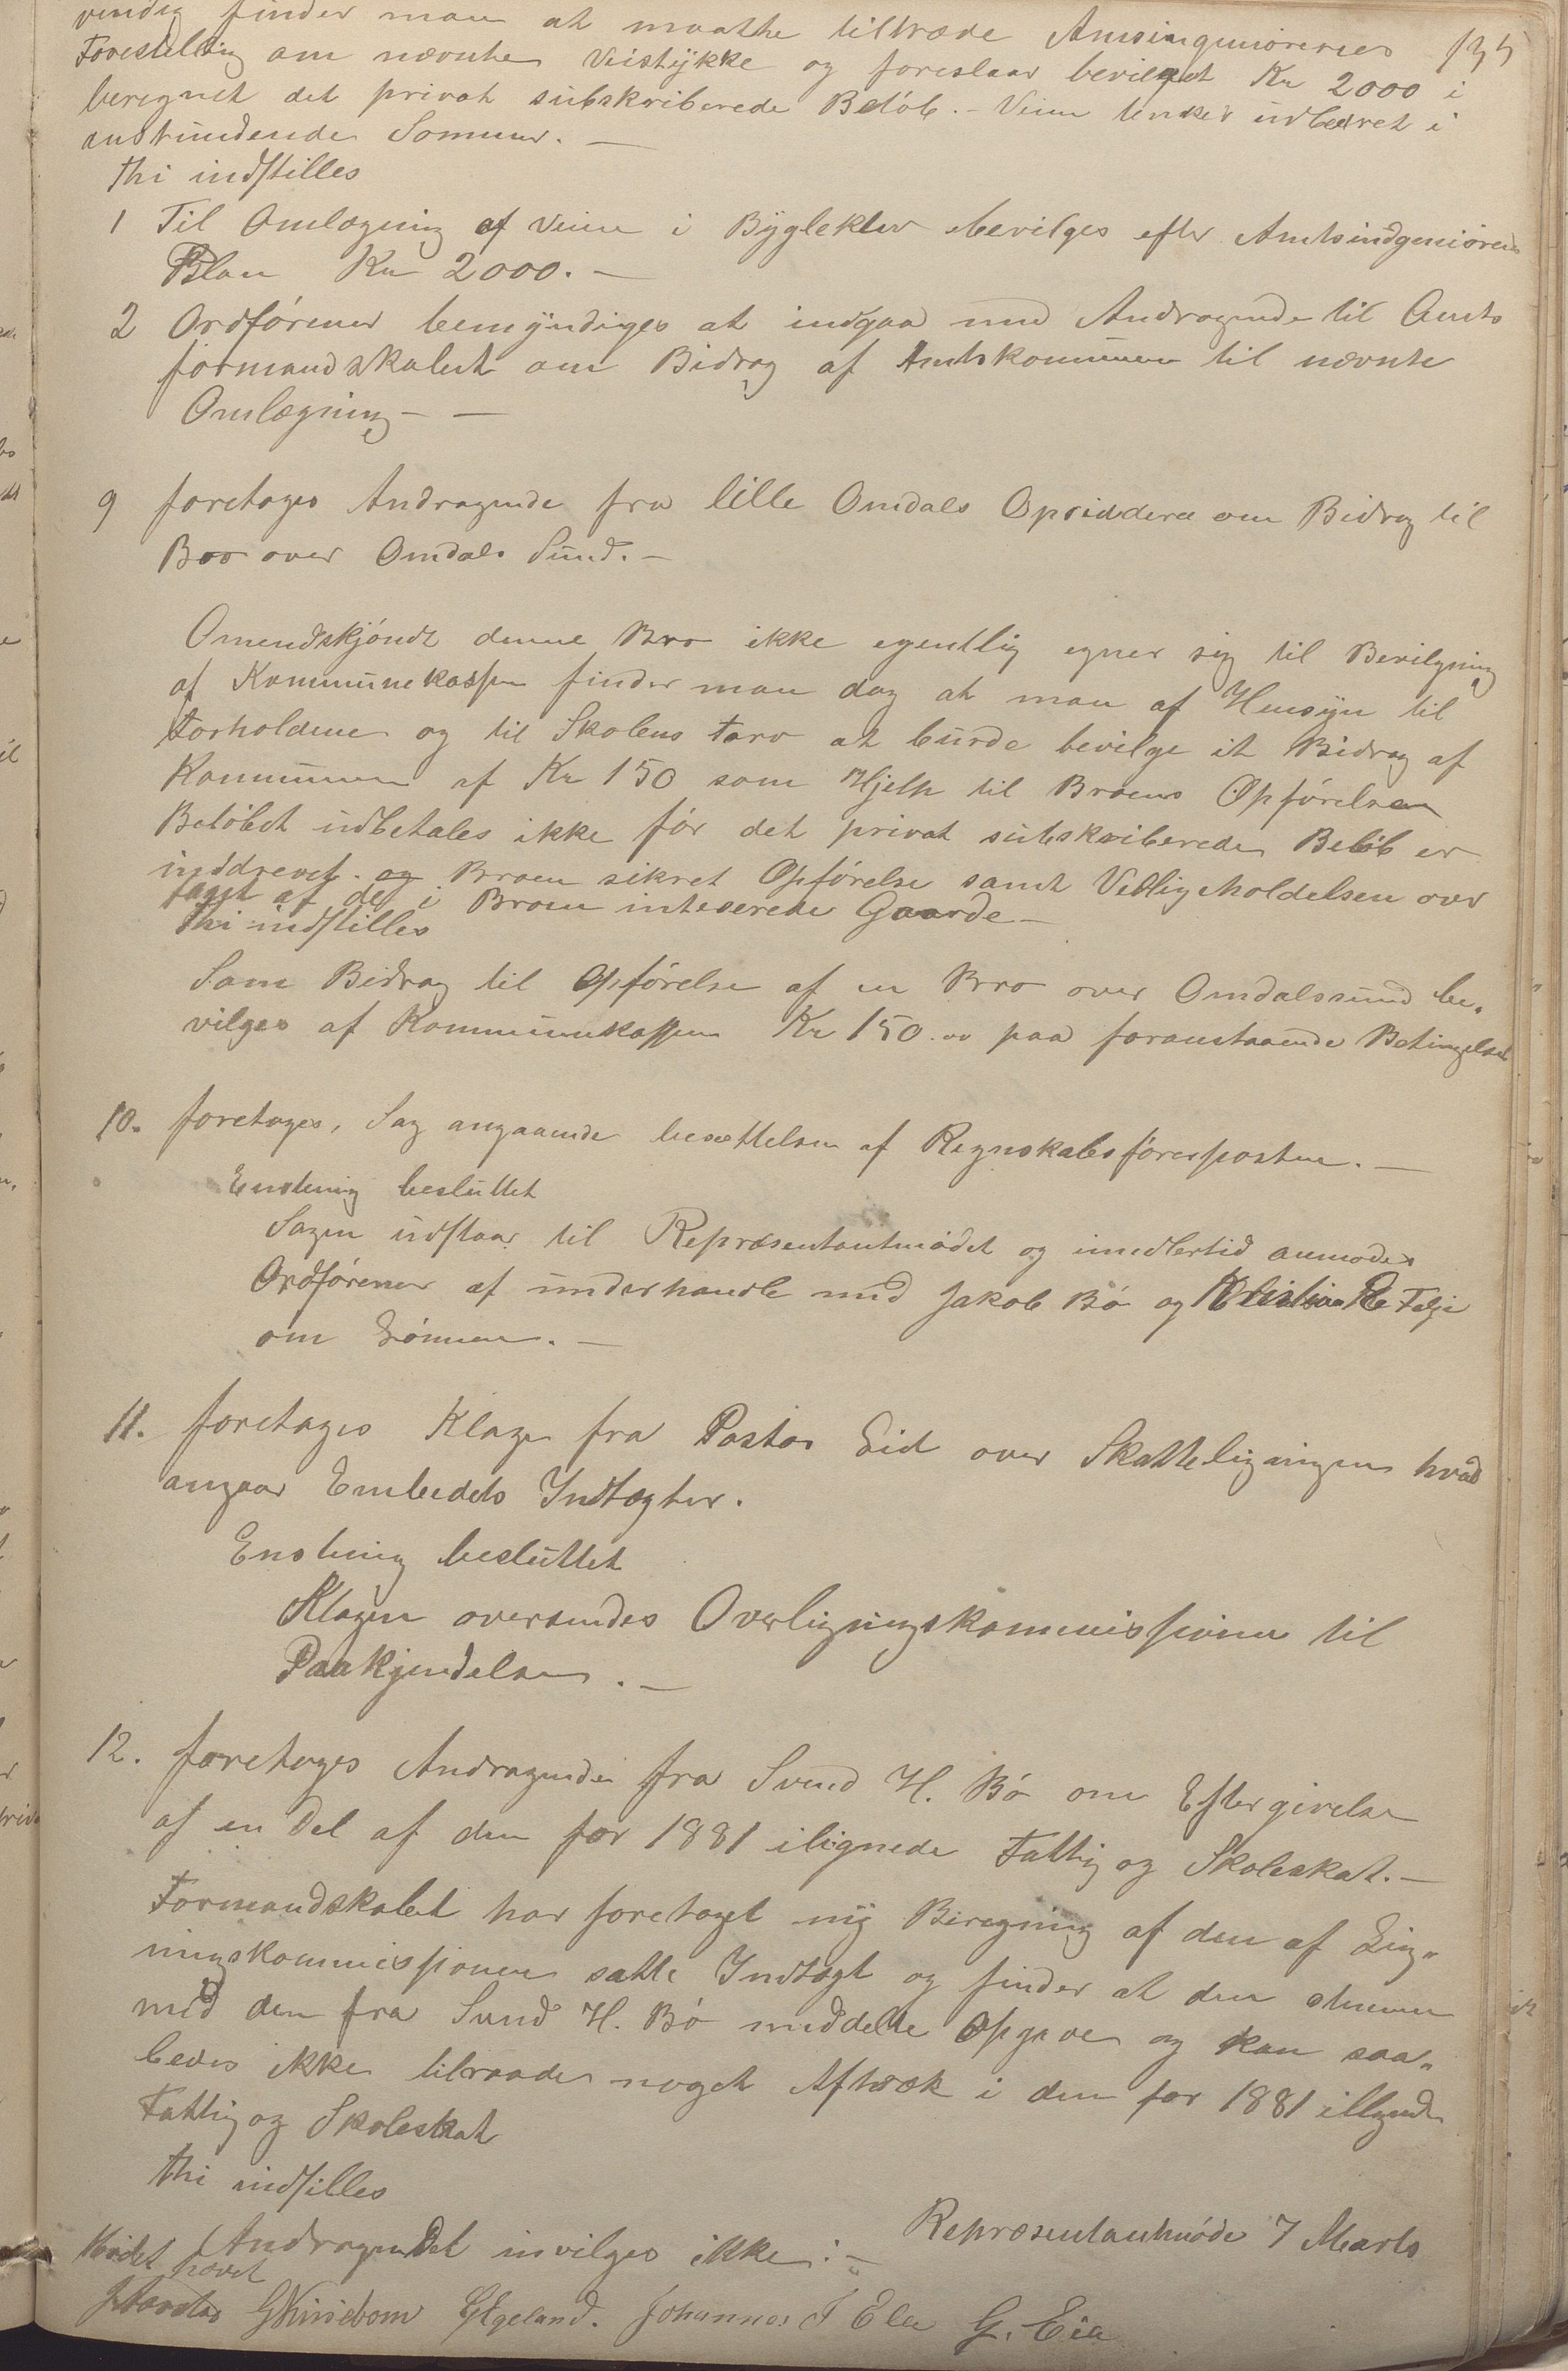 vendig finder man at maatte tiltræde Amtsingeniørens 135
Forestilling om nævnte Veistykke og foreslaar bevilget Kr 2000 i
beregnet det privat subskriberede Beløb. – Veien tænkes udbedret i
instundende Sommer. —
thi indstilles
1 Til Omlægning af Veien i Bygleklev bevilges efter Amtsindgeniørens
Plan Kr 2000. —
2 Ordføreren bemyndiges at indgaa med Andragende til Amts
formandskabet om Bidrag af Amtskommunen til nævnte
Omlægning — —
9 foretages Andragende fra lille Omdals Opsiddere om Bidrag til
Bro over Omdals Sund. —
Omendskjøndt denne Bro ikke egentlig egner sig til Bevilgning
af Kommunekassen finder man dog at man af Hensyn til
Forholdene og til Skolens Tarv at burde bevilge it Bidrag af
Kommunen af Kr 150 som Hjelp til Broens Opførelse
Beløbet udbetales ikke før det privat subskriberede Beløb er
inddrevet. og Broen sikret Opførelse samt Vedligeholdelsen over
taget af de i Broen intereserede Gaarde —
thi indstilles
Som Bidrag til Opførelse af en Bro over Omdalssund be-
vilges af Kommunekassen Kr 150.00 paa foranstaaende Betingelser
10. foretages, Sag angaaende besættelsen af Regnskabsførerposten. —
Enstemig besluttet
Sagen udstaar til Repræsentantmødet og imidlertid anmodes
Ordføreren af underhandle med Jakob Bø og Felge
om Lønnen. —
11. foretages Klage fra Pastor Eid over Skatteligningen hvad
angaar Embedets Indtægter.
Enstemig besluttet
Klagen oversendes Overligningskommissionen til
Paakjendelse. —
12. foretages Andragende fra Svend H. Bø om Eftergivelse
af en Del af den for 1881 ilignede Fattig og Skoleskat. —
Formandskabet har foretaget ny Beregning af den af Lig-
ningskommissionen satte Indtægt og finder at den stemmer
med den fra Svend H. Bø meddelte Opgave og kan saa-
ledes ikke tilraade noget Aftræk i den for 1881 illignede
Fattig og Skoleskat
thi indstilles
Andragendet invilges ikke: — Repræsentantmøde 7 Marts
Mødet hævet
Egeland. Johannes T Eie G. Eia